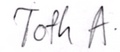 Toth A.